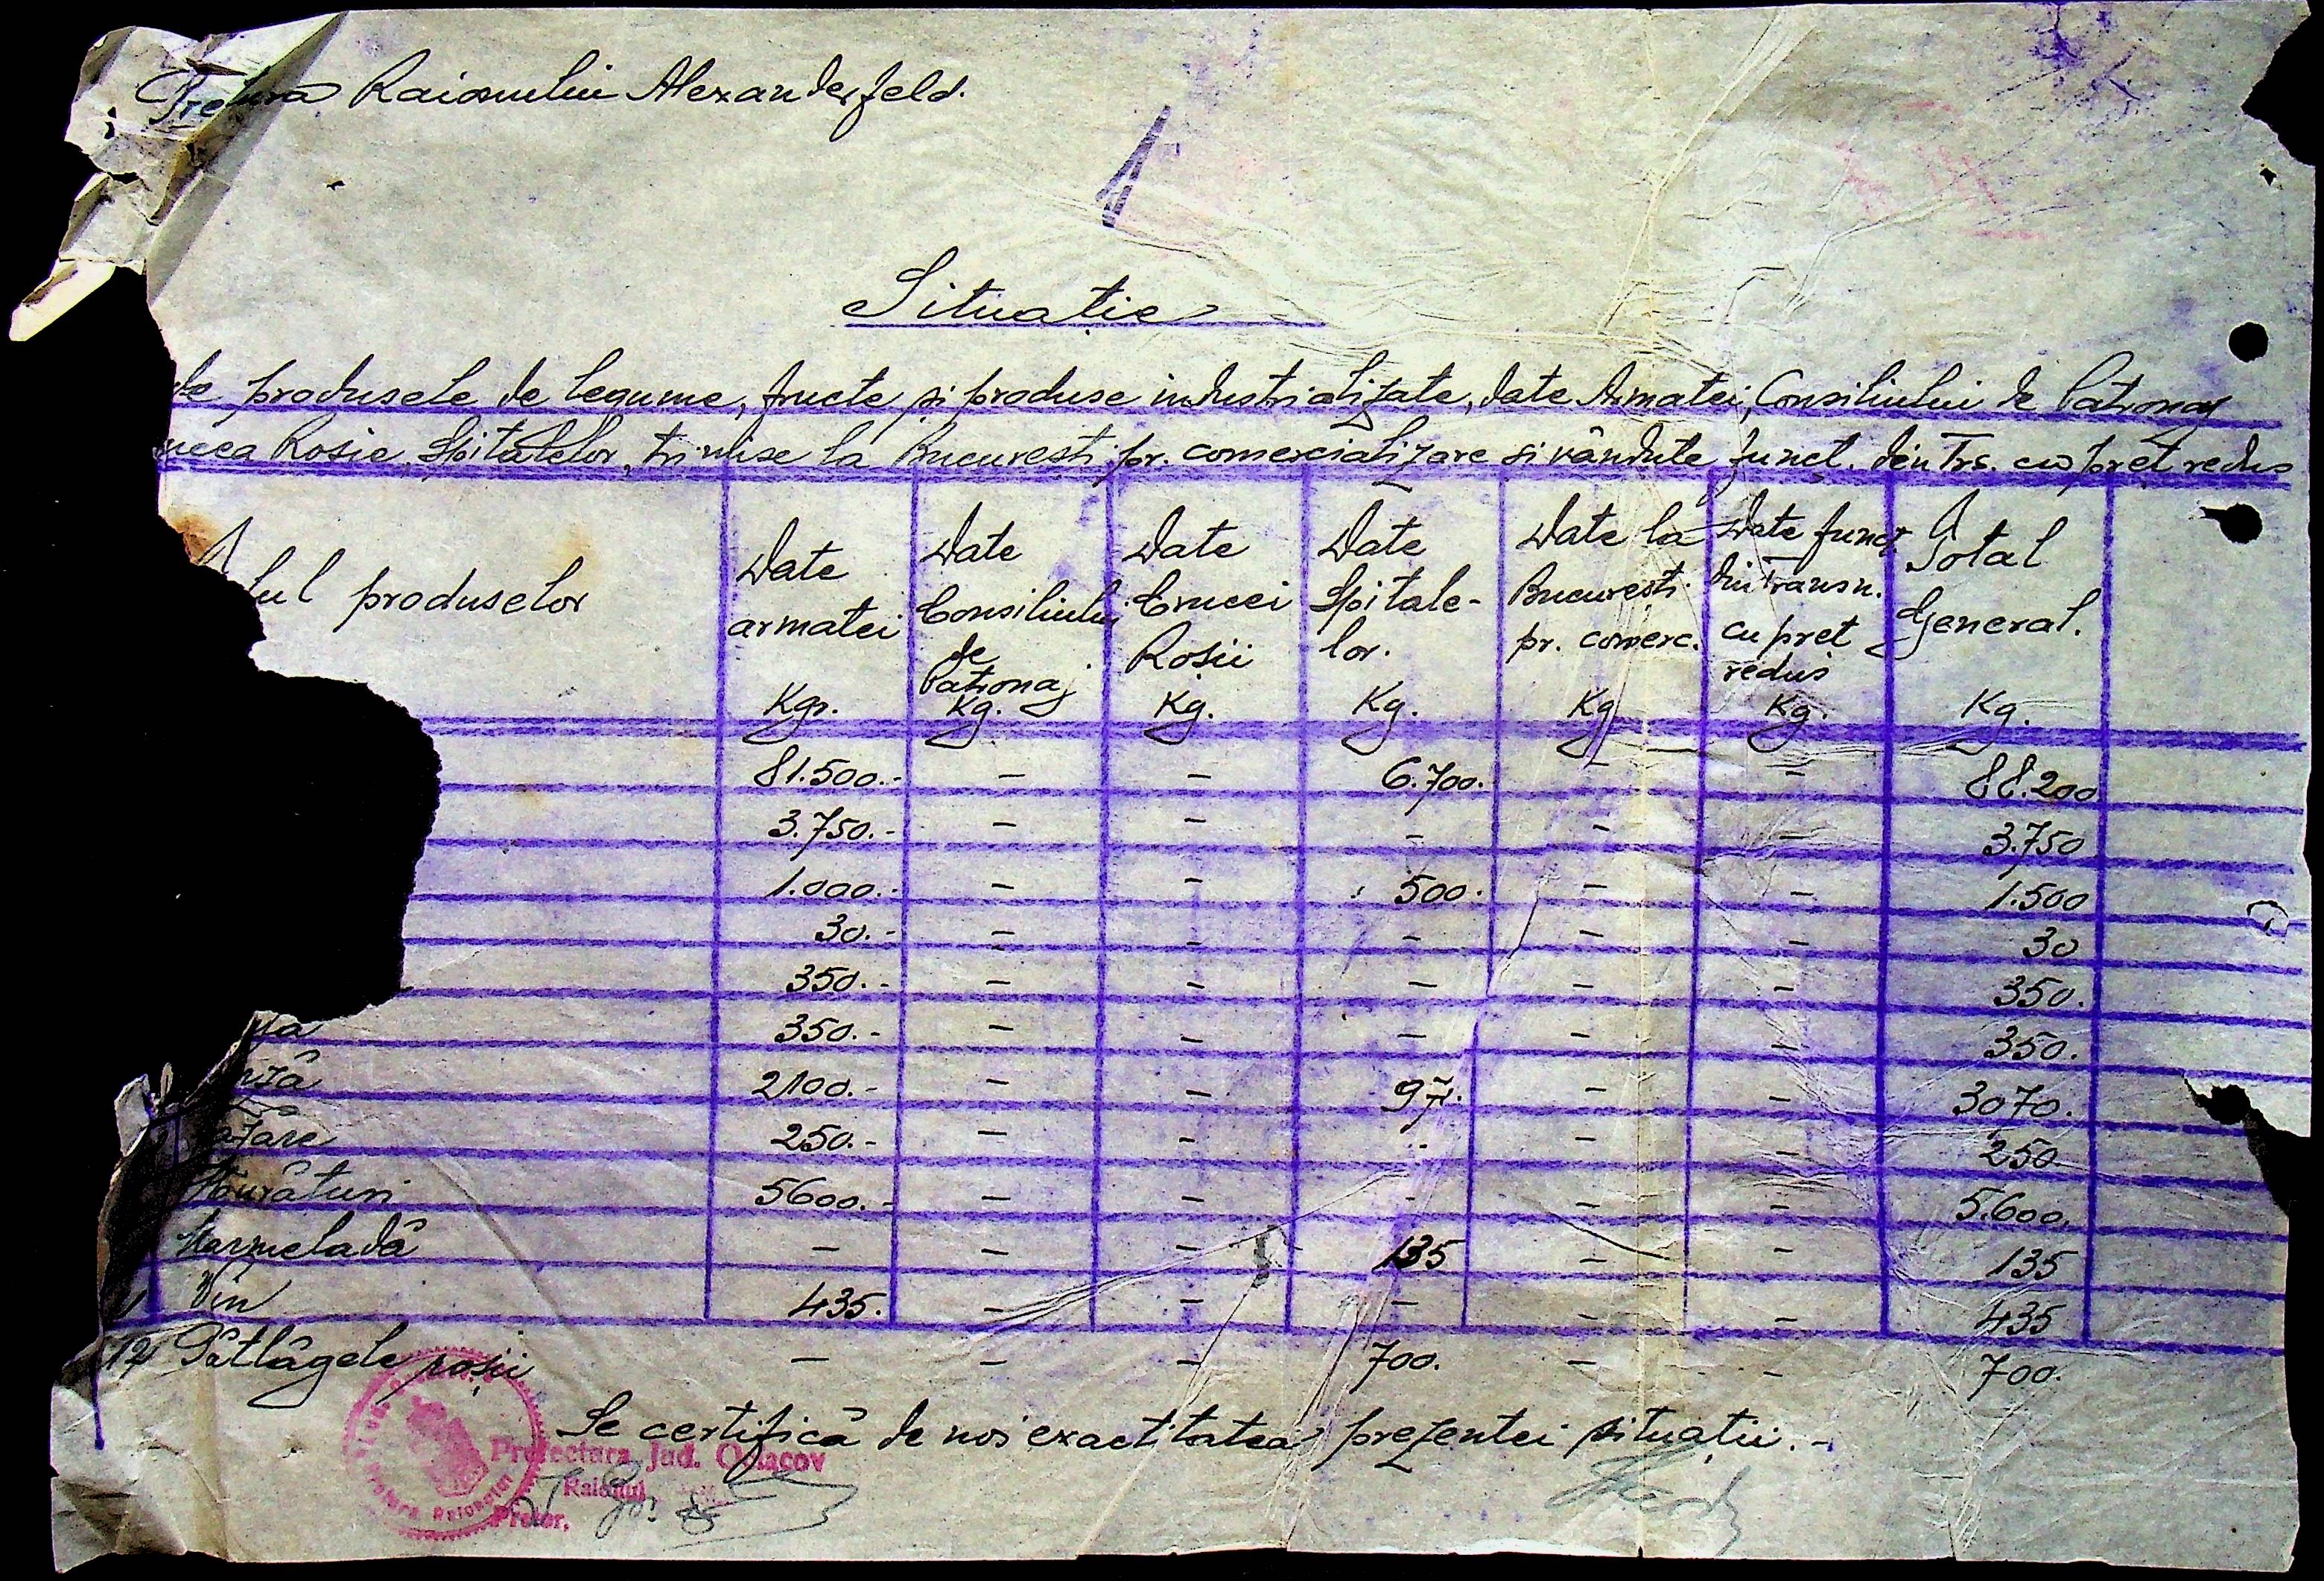 Pretura Raionului Alexanderfeld.
Situatie
de produsele de legume, fructe și produse industrializate, date Armatei, Consiliului de Patronaj
Rosie, Spitalelor, trimise la Bucuresti pr. comercializare si vândute funct. din Trs. cu preț redus
produselor
Date armatei Kgr.
Date Consiliului de Patronaj Kg.
Date Crucei Rosii Kg.
Date Spitale-lor. Kg.
Date la Bucuresti pr. comerc. Kg
Date funcț. din Transn. cu pret redus Kg.
Total General. Kg.
81.500.- - - 6.700. - - 88.200
3.750.- - - - - - 3.750
1.000.- - - 500. - - 1.500
30.- - - - - - 30
350.- - - - - - 350.
350.- - - - - - 350.
2100.- - - - - 3070.
250.- - - - - 250
Murături 5600.- - - - - - 5.600.
Marmeladă - - - 135 - - 135
Vin 435. - - - - - 435
12 Pătlăgele roșii - - - 700. - - 700.
Se certifică de noi exactitatea prezentei situații.-
Prefectura Jud. Oceacov
Raionul
Pretor,